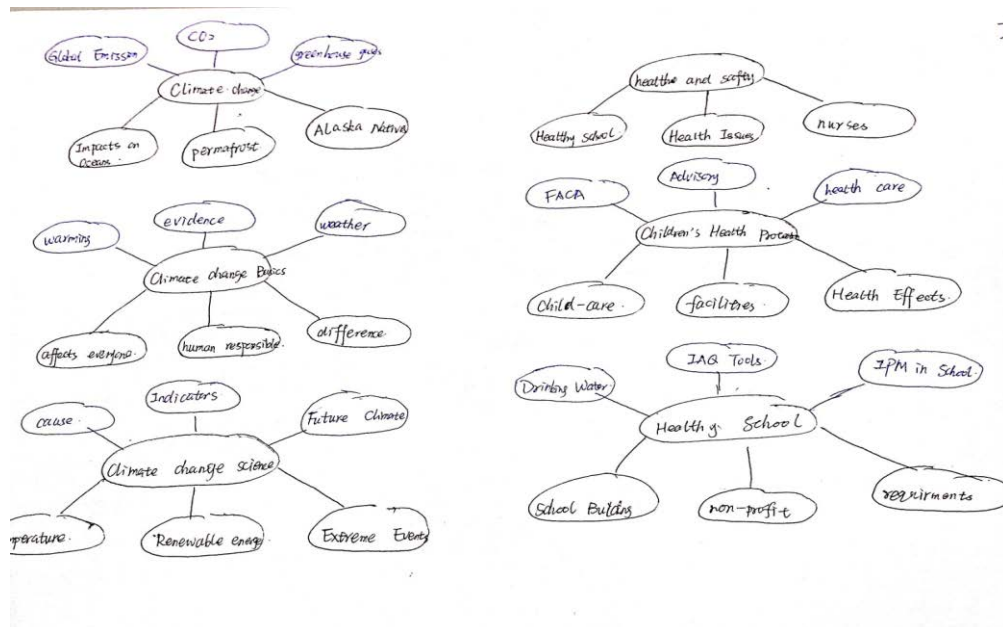 CO2
Global Emisson
greenhouse gases
Climate change
Impacts on
Oceans.
permafrost
Alaska Native
evidence
warming
weather
Climate change Basics
affects everyone.
human responsible.
difference.
Indicators
cause.
Future Climate
Climate change science
mperature.
Renewable energy
Extreme Events
healthe and safty
Healthy school.
Health Issues
nurses
Advisory
FACA
health care
Children's Health Protect
Child-care.
facilities.
Health Effects.
IAQ Tools.
Drinking Water
IPM in School.
Healthy. School
School Building
non-profit
requirments